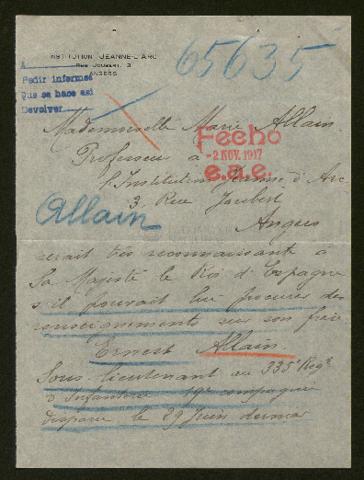 INSTITUTION JEANNE-D'ARC
RUE JOUBERT, 3
ANGERS
65635
A
Pedir informes
Que se hace asi
Devolver
Mademoiselle Marie Allain
Fecho
-2 NOV. 1917
e.a.e.
Professeur à
l'Institution Jeanne d'Arc
3, Rue Joubert
Allain
Angers
serait très reconnaissante à
Sa Majesté le Roi d'Espagne
s'il pouvait lui procurer des
renseignements sur son frère
Ernest Allain.
Sous lieutenant au 335e Regt
d'Infanterie 19e compagnie
disparu le 29 Juin dernier